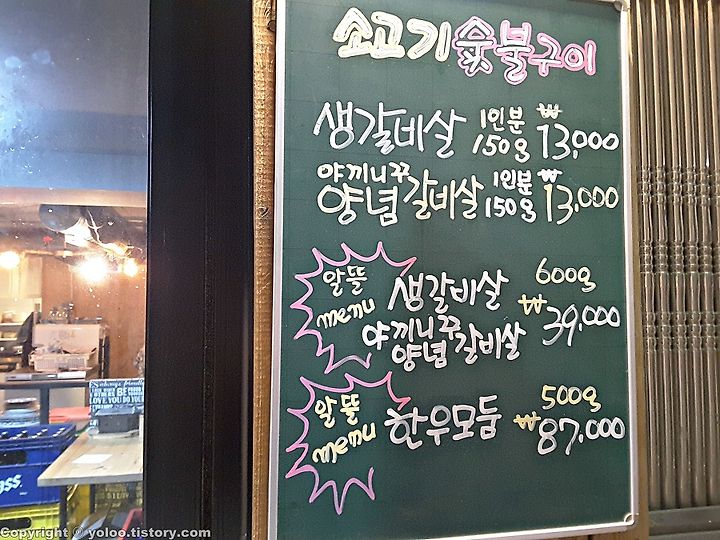 소고기숯불구이
생갈비살 1인분 150g ₩13,000
야끼니꾸 양념갈비살 1인분 150g ₩13,000
알뜰 menu
생갈비살
야끼니꾸 양념갈비살
600g
₩39,000
알뜰 menu
한우모듬
500g
₩87,000
LOVE YOU DO YOU
Copyright © yoloo.tistory.com